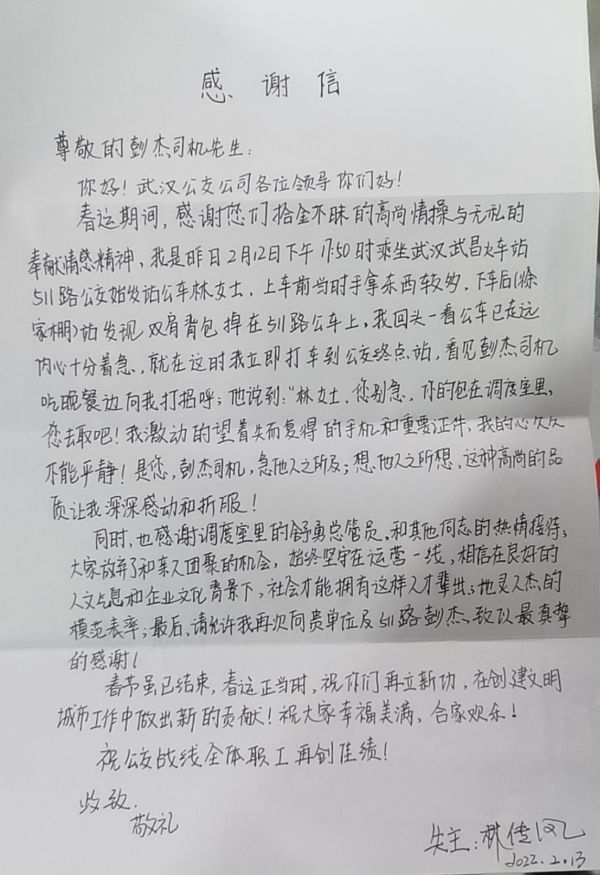 感谢信
尊敬的彭杰司机先生：
你好！武汉公交公司各位领导你们好！
春运期间，感谢您们拾金不昧的高尚情操与无私的
奉献情感精神，我是昨日2月12日下午17:50时乘坐武汉武昌火车站
511路公交始发站公车林女士，上车前当时手拿东西较多，下车后(徐
家棚)站发现双肩背包掉在511路公车上，我回头一看公车已走远
内心十分着急，就在这时我立即打车到公交终点站，看见彭杰司机
吃晚餐边向我打招呼；他说到："林女士，您别急，你的包在调度室里，
您去取吧！我激动的望着失而复得的手机和重要证件，我的心久久
不能平静！是您，彭杰司机，急他人之所及；想他人之所想，这种高尚的品
质让我深深感动和折服！
同时，也感谢调度室里的舒勇总管员，和其他同志的热情接待；
大家放弃了和亲人团聚的机会，始终坚守在运营一线，相信在良好的
人文气息和企业文化背景下，社会才能拥有这样人才辈出；地灵人杰的
模范表率；最后，请允许我再次向贵单位及511路彭杰，致以最真挚
的感谢！
春节虽已结束，春运正当时，祝你们再立新功，在创建文明
城市工作中做出新的贡献！祝大家幸福美满，合家欢乐！
祝公交战线全体职工再创佳绩！
此致
敬礼
失主：林传凤
2022.2.13